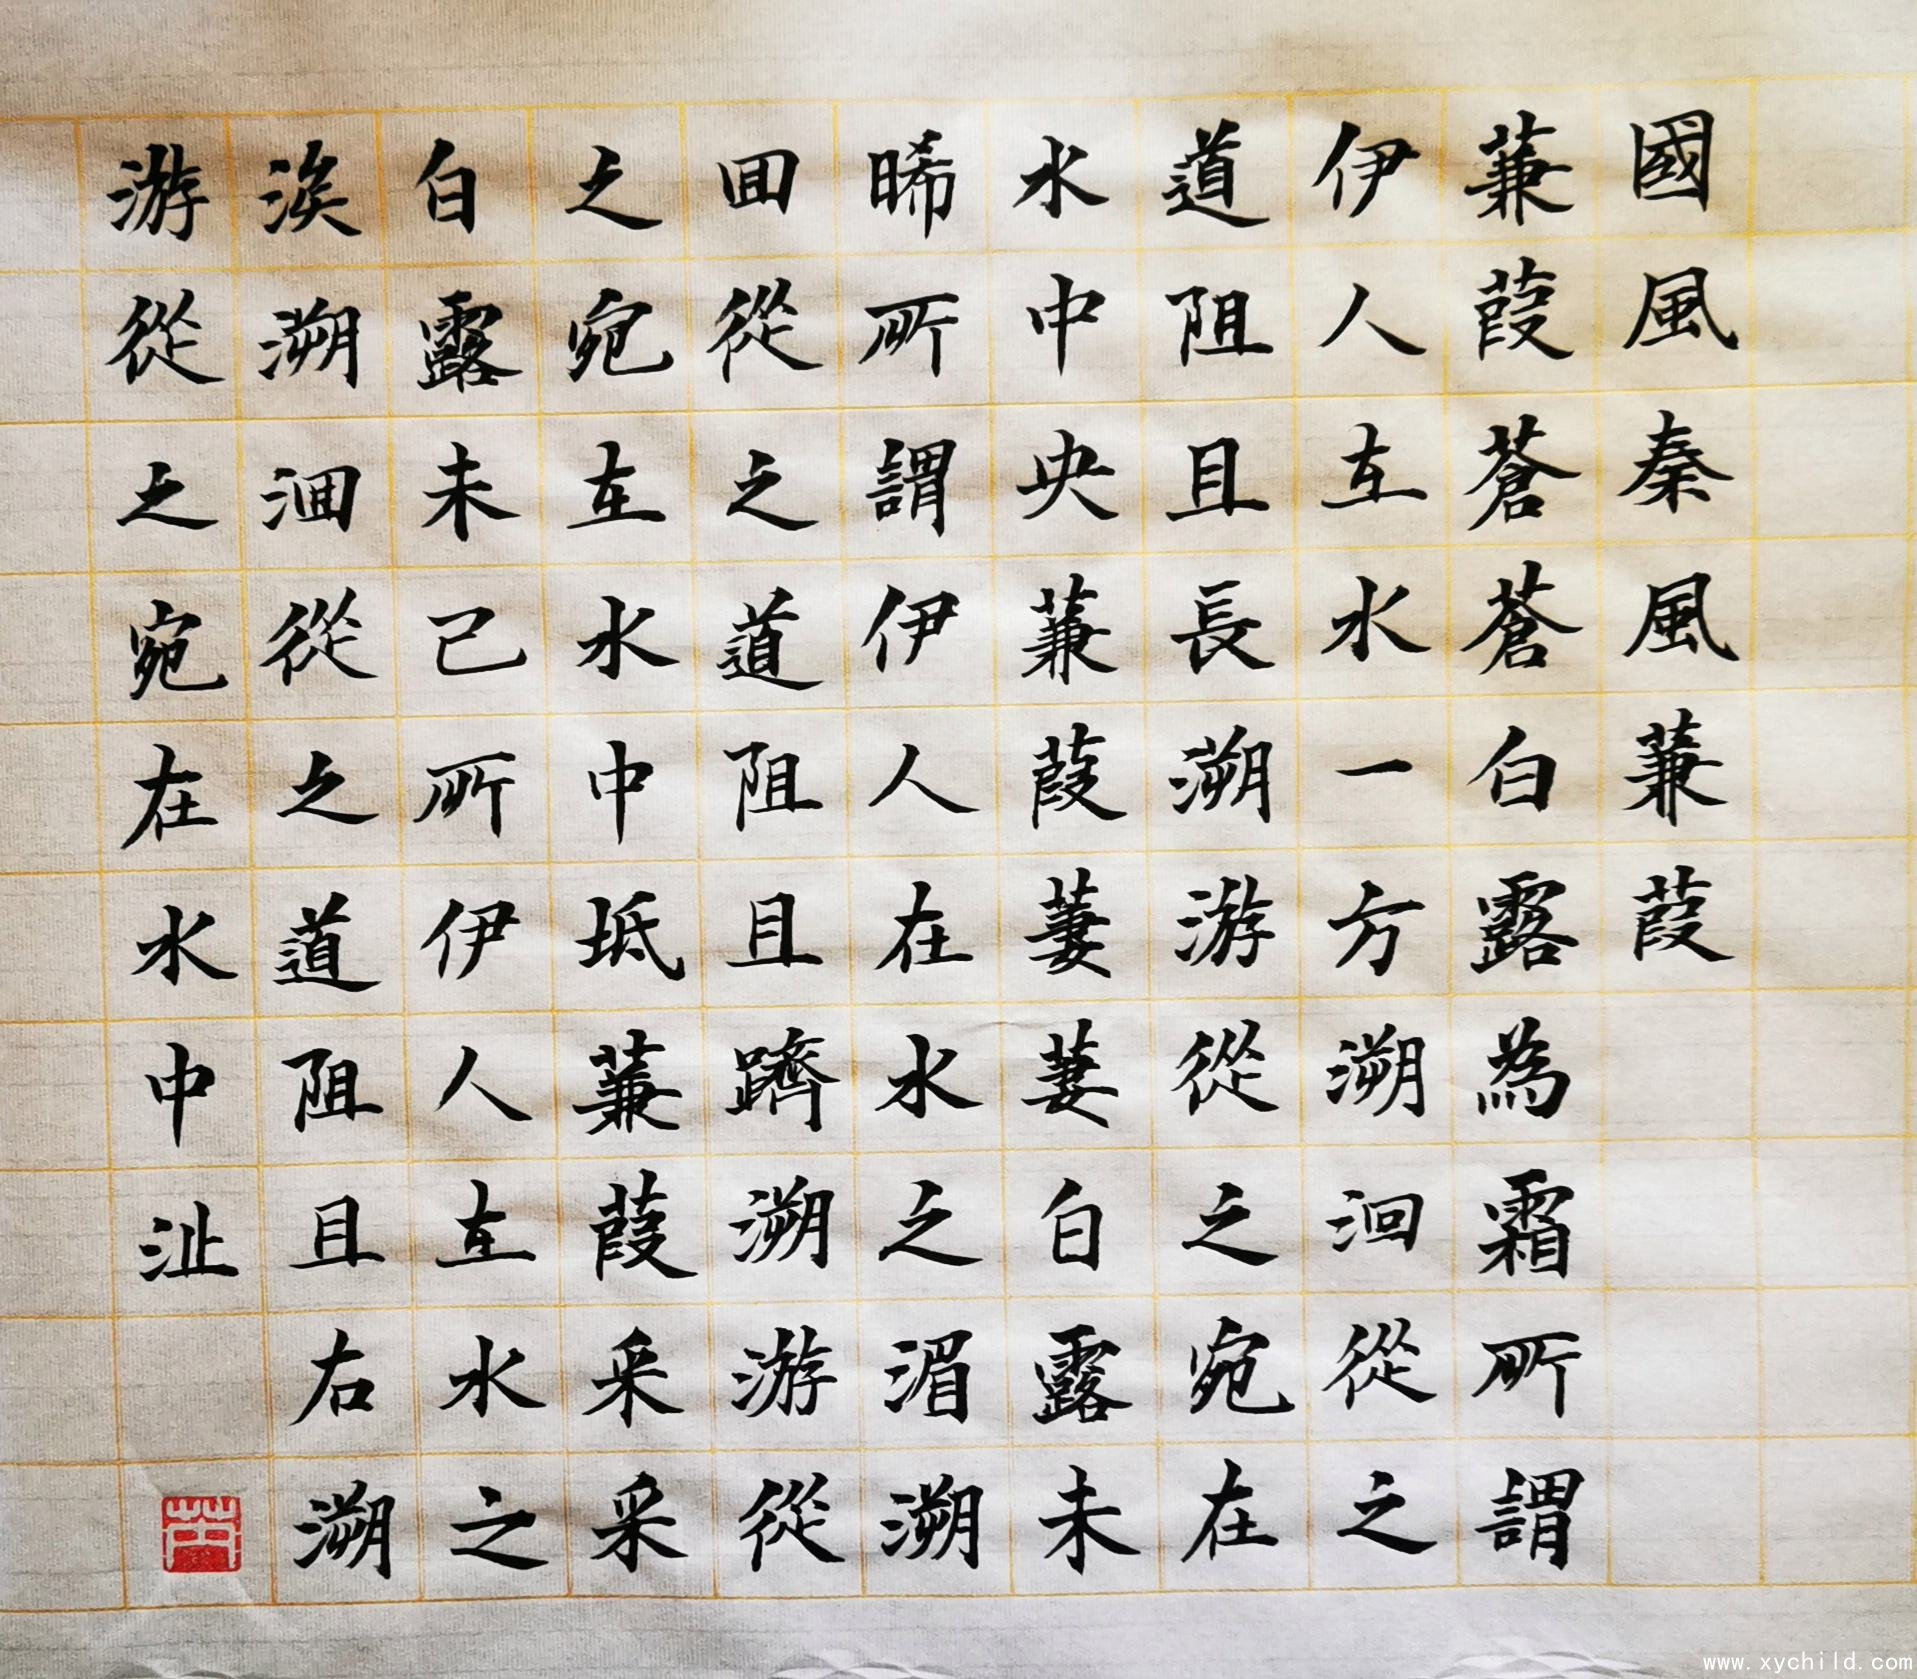 國風秦風蒹葭
蒹葭蒼蒼白露為霜所謂
伊人在水一方溯洄從之
道阻且長溯游從之宛在
水中央蒹葭萋萋白露未
晞所謂伊人在水之湄溯
囬從之道阻且躋溯游從
之宛在水中坻蒹葭采采
白露未己所伊人在水之
涘溯洄從之道阻且右溯
游從之宛在水中沚
www.xychild.com